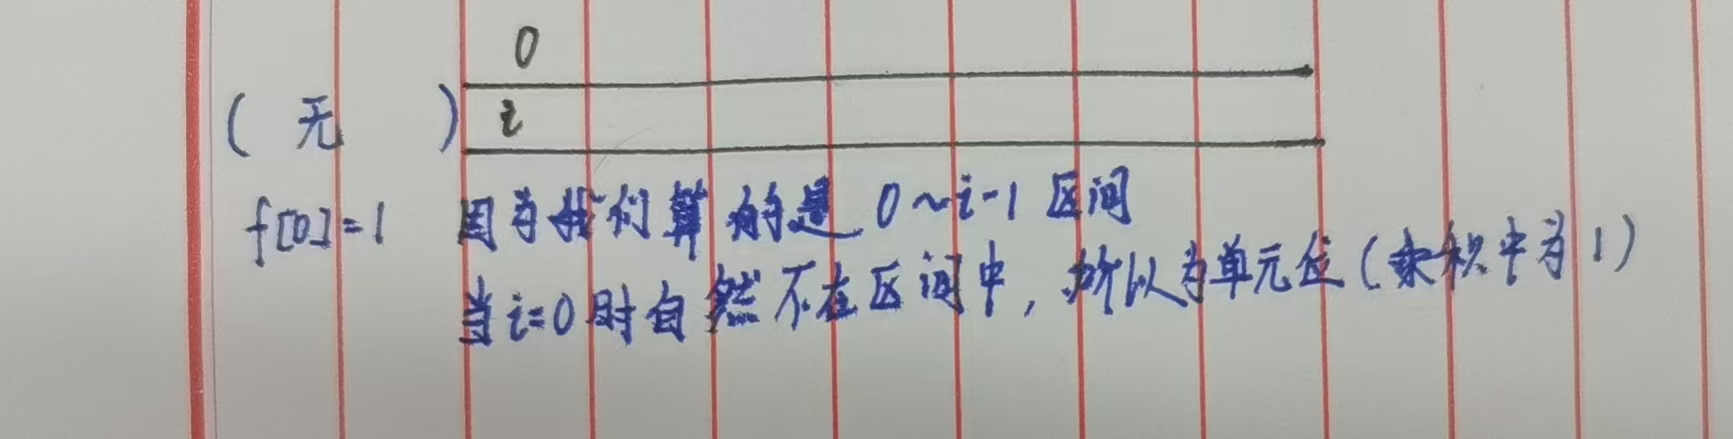 0
(无 ) i
f[0]=1 因为我们算的是 0~i-1 区间
当i=0时自然不在区间中,所以为单元位(乘积中为1)